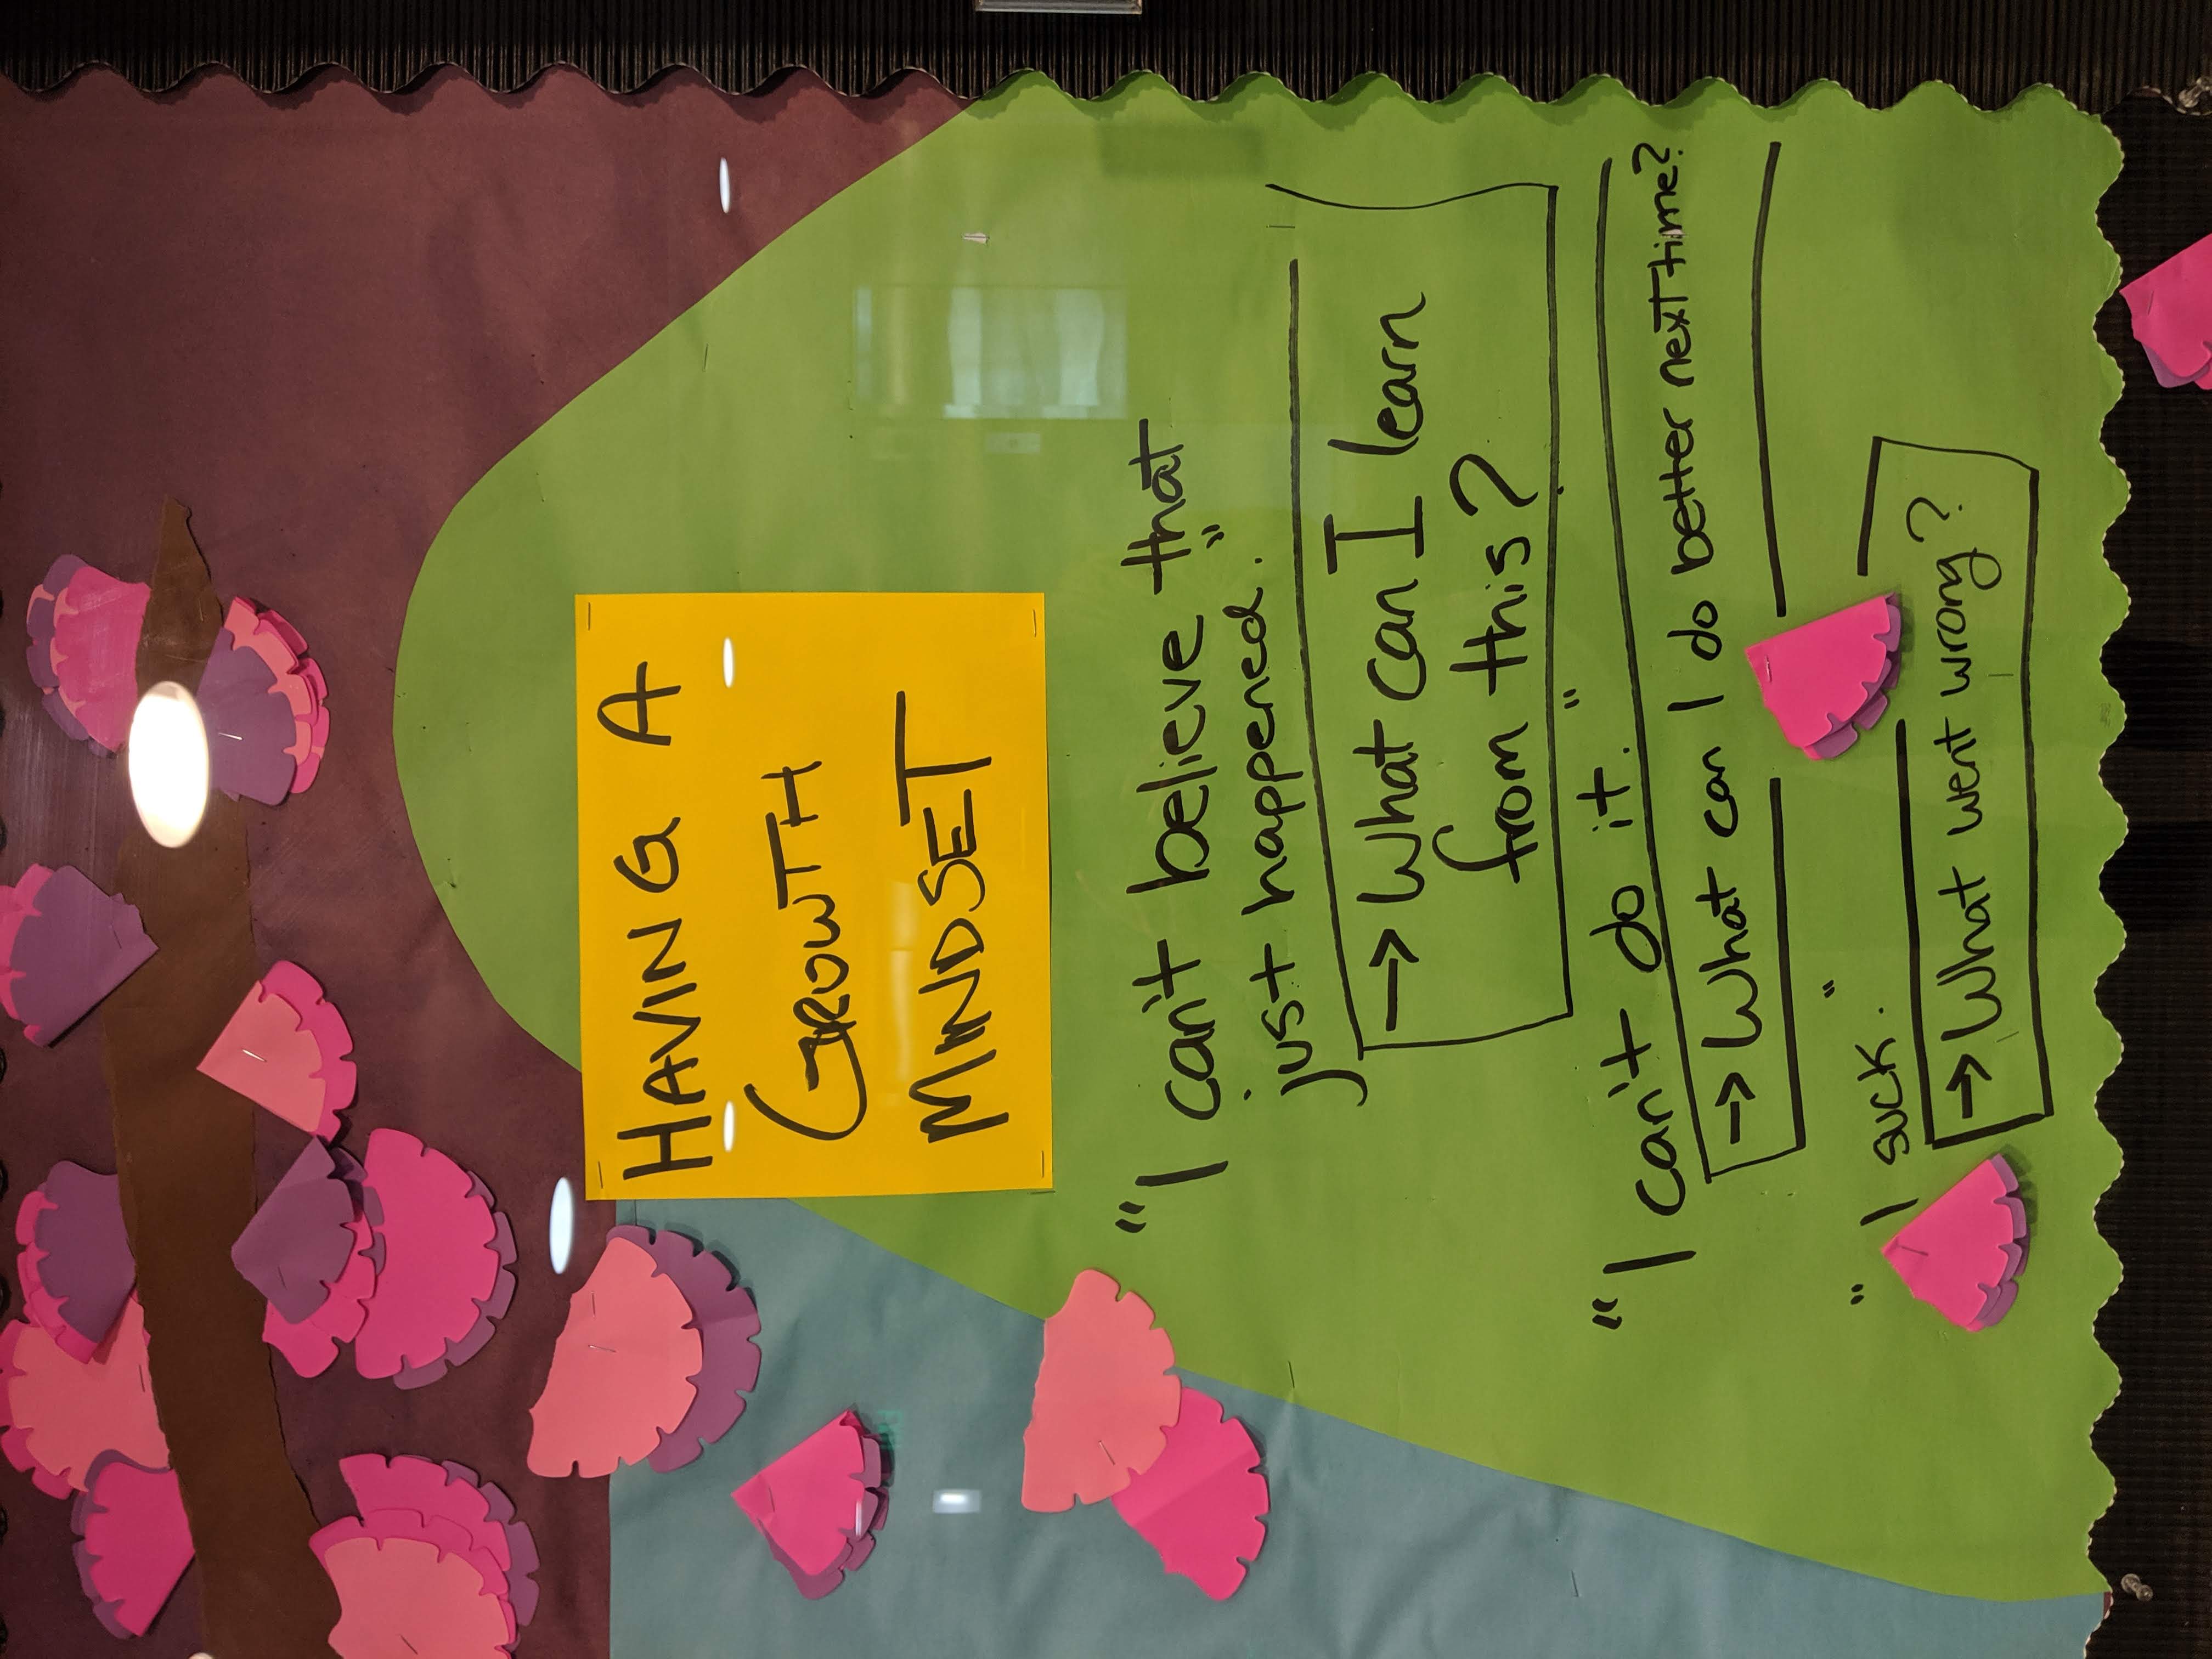 HAVING A
GROWTH
MINDSET
"I can't believe that
just happened."
→ What can I learn
from this?
"I can't do it."
→ What can I do better next time?
"I suck."
→ What went wrong?